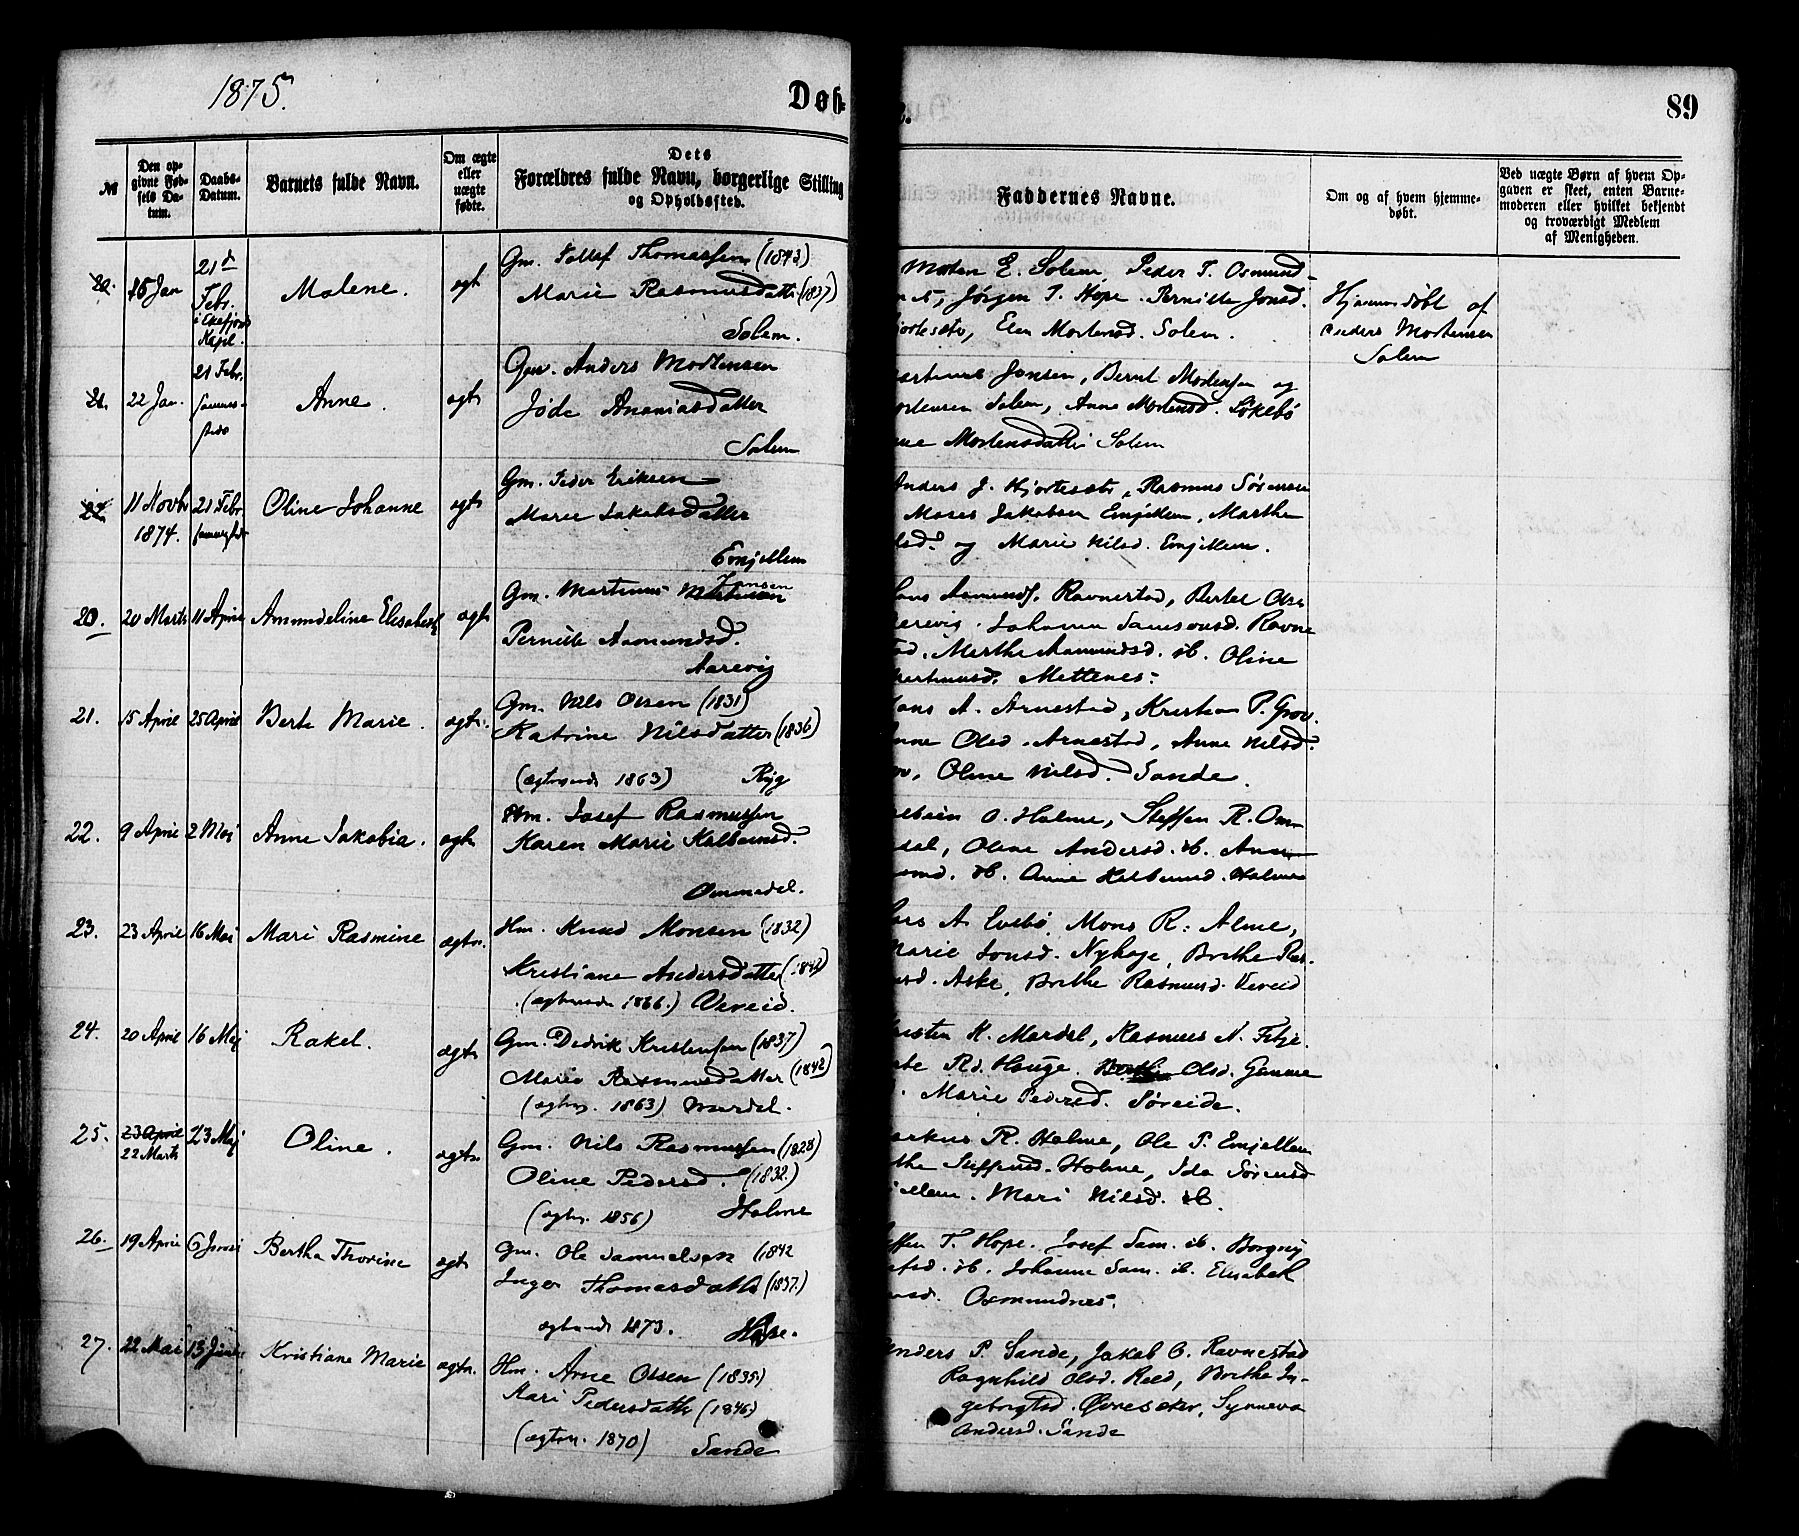 1875.
Døb-
89
№
Den op-
givne Fød-
sels Da-
tum.
Daabs-
Datum.
Barnets fulde Navn.
Om ægte
eller
uægte
fødte.
Dets
Forældres fulde Navn, borgerlige Stilling
og Opholdssted.
Faddernes Navne.
Om og af hvem hjemme-
døbt.
Ved uægte Børn af hvem Op-
gaven er skeet, enten Barne-
moderen eller hvilket bekjendt
og troværdigt Medlem
af Menigheden.
Jan
21d
Febr.
Kapel.
Malene.
ægt
Gm. Tollef Thomassen (1843)
Marie Rasmusdatter (1837)
Solem.
Morten E. Solem, Peder T. Osmund-
Jørgen T. Hope. Pernille Jonsd.
Elen Mortensd. Solem.
Hjemmedøbt af
Anders Mortensen
Solem
21.
22 Jan.
21 Febr.
sammes-
steds
Anne.
ægte
Gm. Anders Mortensen
Jøde Ananiasdatter
Solem
Jonsen, Bernt Mortensen og
Solem, Anne Mortensd. Løkebø
Mortensdatter Solem
22.
11 Novbr
1874.
21 Febr
Oline Johanne
ægte
Gm. Peder Eriksen
Marie Jakobsdatter
Emjellem
Anders J. Hjortesæter, Rasmus Sørensen
Moses Jakobsen Emjellem, Marthe
og Marie Nilsd. Emjellem.
20.
20 Marts
11 April
Amundeline Elisabeth
ægte
Gm. Martinus Jansen
Pernille Aamundsd.
Aarevig
Hans Aamunds. Ravnestad, Bertel Olse
Johanne Samsonsd. Ravne
Marthe Aamundsd. ib. Oline
Mettenes.
21.
15 April
25 April
Berte Marie.
ægte.
Gm. Nils Olsen (1831)
Katrine Nilsdatter (1836)
(ægtevede 1863) Ryg
Hans A. Arnestad, Kristen P. Grov.
Anne Olsd. Arnestad, Anne Nilsd.
Oline Nilsd. Sande.
22.
9 April
2 Mai
Anne Jakobia.
ægte
Hm. Josef Rasmussen
Karen Marie Kolbeinsd.
Ommedal.
O. Holme, Steffen R. Om-
dal, Oline Andersd. ib. Anne
ib. Anne Kolbeinsd. Holme
23.
23 April
16 Mai
Mari Rasmine
ægte.
Hm. Knud Monsen (1832)
Kristiane Andersdatter (1842)
(ægteviede 1866.) Vereid.
Lars A. Evebø, Mons R. Alme,
Marie Jonsd. Nyhage, Brithe Ras-
musd. Aske, Brithe Rasmusd. Vereid
24.
20 April
16 Mai
Rakel.
ægte
Gm. Didrik Kristensen (1837)
Marie Rasmusdatter (1842)
(ægtev. 1863) Mardal.
Kristen K. Mardal, Rasmus N. Fitje.
Pd. Hauge. Olsd. Gimme
Marie Pedersd. Søreide.
25.
23 April
22 Marts
23 Mai
Oline.
ægte.
Gm. Nils Rasmussen (1828)
Oline Pedersd. (1832)
(ægtev. 1856) Holme
Markus R. Holme, Ole P. Emjellem
Steffensd. Holme, Ida Sørensd
Mari Nilsd. ib.
26.
19 April
6 Juni
Bertha Thorine
ægte
Gm. Ole Samuelsen (1842
Inger Thomasdatter (1837.)
ægteviede 1873. Hope.
Steffen T. Hope. Josef Sam. ib. Borgny
ib. Johanne Sam. ib. Elisabeth
Osmundnes.
27.
22 Mai
13 Juni
Kristiane Marie
ægte.
Hm. Arne Olsen (1835)
Kari Pedersdatter (1846)
(ægtev. 1870) Sande
Anders P. Sande, Jakob O. Ravnestad
Ragnhild Olsd. Reed, Brithe In-
gebrigtsd. Øvresæter, Synneva
Andersd. Sande